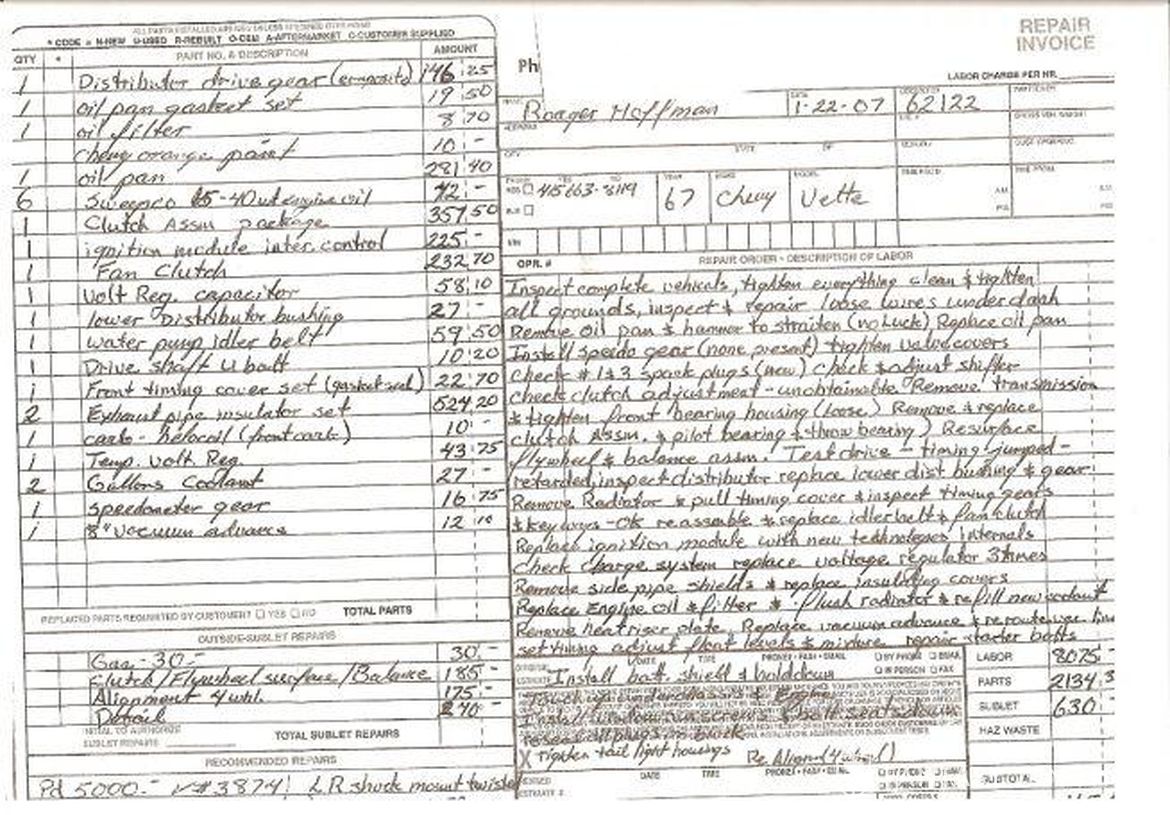 ALL PARTS INSTALLED ARE NEW UNLESS SPECIFIED OTHERWISE
* CODE = N-NEW U-USED R-REBUILT O-OEM A-AFTERMARKET C-CUSTOMER SUPPLIED
QTY * PART NO. & DESCRIPTION AMOUNT
1 Distributor drive gear (composite) 146 25
1 oil pan gasket set 19 50
1 oil filter 8 70
chevy orange paint 10 -
1 oil pan 281 40
6 Swepco 15-40wt engine oil 42 -
1 Clutch Assm package 357 50
1 ignition module inter. control 225 -
1 Fan Clutch 232 70
1 Volt Reg. capacitor 58 10
1 lower Distributor bushing 27 -
1 water pump idler belt 59 50
1 Drive shaft U bolt 10 20
1 Front timing cover set (gasket seal) 22 70
2 Exhaust pipe insulator set 524 20
1 carb - helocoil (front carb) 10 -
1 Temp. Volt Reg. 43 75
2 Gallons Coolant 27 -
1 speedometer gear 16 75
1 8" vacuum advance 12 10
REPLACED PARTS REQUESTED BY CUSTOMER? ☐ YES ☐ NO TOTAL PARTS
OUTSIDE-SUBLET REPAIRS
Gas - 30.- 30 -
Clutch/Flywheel surface/Balance 185 -
Alignment 4 whl. 175 -
Detail 240 -
INITIAL TO AUTHORIZE
SUBLET REPAIRS TOTAL SUBLET REPAIRS
RECOMMENDED REPAIRS
Pd 5000.- ✓#3874 L.R shock mount twisted
REPAIR
INVOICE
Ph
LABOR CHARGE PER HR.
Roager Hoffman 1-22-07 62122
CITY STATE ZIP
RES ☐ 415 663-8119 YEAR 67 Chevy MODEL Vette
BUS ☐
VIN
OPR. # REPAIR ORDER - DESCRIPTION OF LABOR
Inspect complete vehicals, tighten everything clean & tighten
all grounds, inspect & repair loose wires under dash
Remove oil pan & hammer to straiten (no Luck) Replace oil pan
Install speedo gear (none present) tighten valve covers
Check # 1 & 3 spark plugs (new) check & adjust shifter
check clutch adjustment - unobtainable Remove transmission
& tighten front bearing housing (loose) Remove & replace
clutch Assm. & pilot bearing & throw bearing) Resurface
flywheel & balance assm. Test drive - timing jumped -
retarded, inspect distributor replace lower dist bushing & gear
Remove Radiator & pull timing cover & inspect timing gears
& keyways - OK reassemble & replace idler belt & fan clutch
Replace ignition module with new technologies internals
Check Charge system replace voltage regulator 3 times
Remove side pipe shields & replace insulating covers
Replace Engine oil & filter & flush radiator & refill new coolant
Remove heat riser plate, Replace vacuum advance & reroute vac. line
set timing adjust float levels & mixture repair starter bolts
Install batt. shield & holddown
Install window run screws & bolt seats down
X Tighten tail light housings Re Align (4 wheel)
DATE TIME PHONE # - FAX - EMAIL ☐ BY PHONE ☐ EMAIL
☐ IN PERSON ☐ FAX
LABOR 8075 -
PARTS 2134 3
SUBLET 630 -
HAZ WASTE
SUBTOTAL